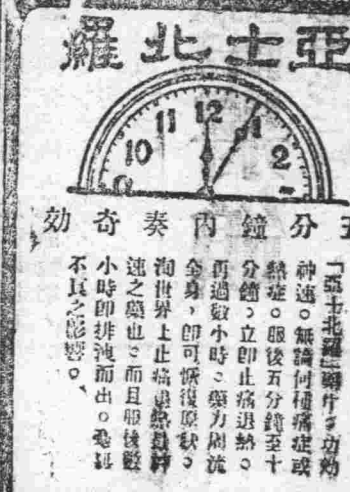 亞士北羅
12
11
1
10
2
五分鐘內奏奇効
「亞士北羅」藥片,功効
神速。無論何種痛症或
熱症。服後五分鐘至十
分鐘,立即止痛退熱。
再過數小時。藥力周流
全身,即可恢復原狀。
洵世界上止痛退熱最神
速之藥也。而且服後數
小時即排洩而出。毫無
不良之影響。